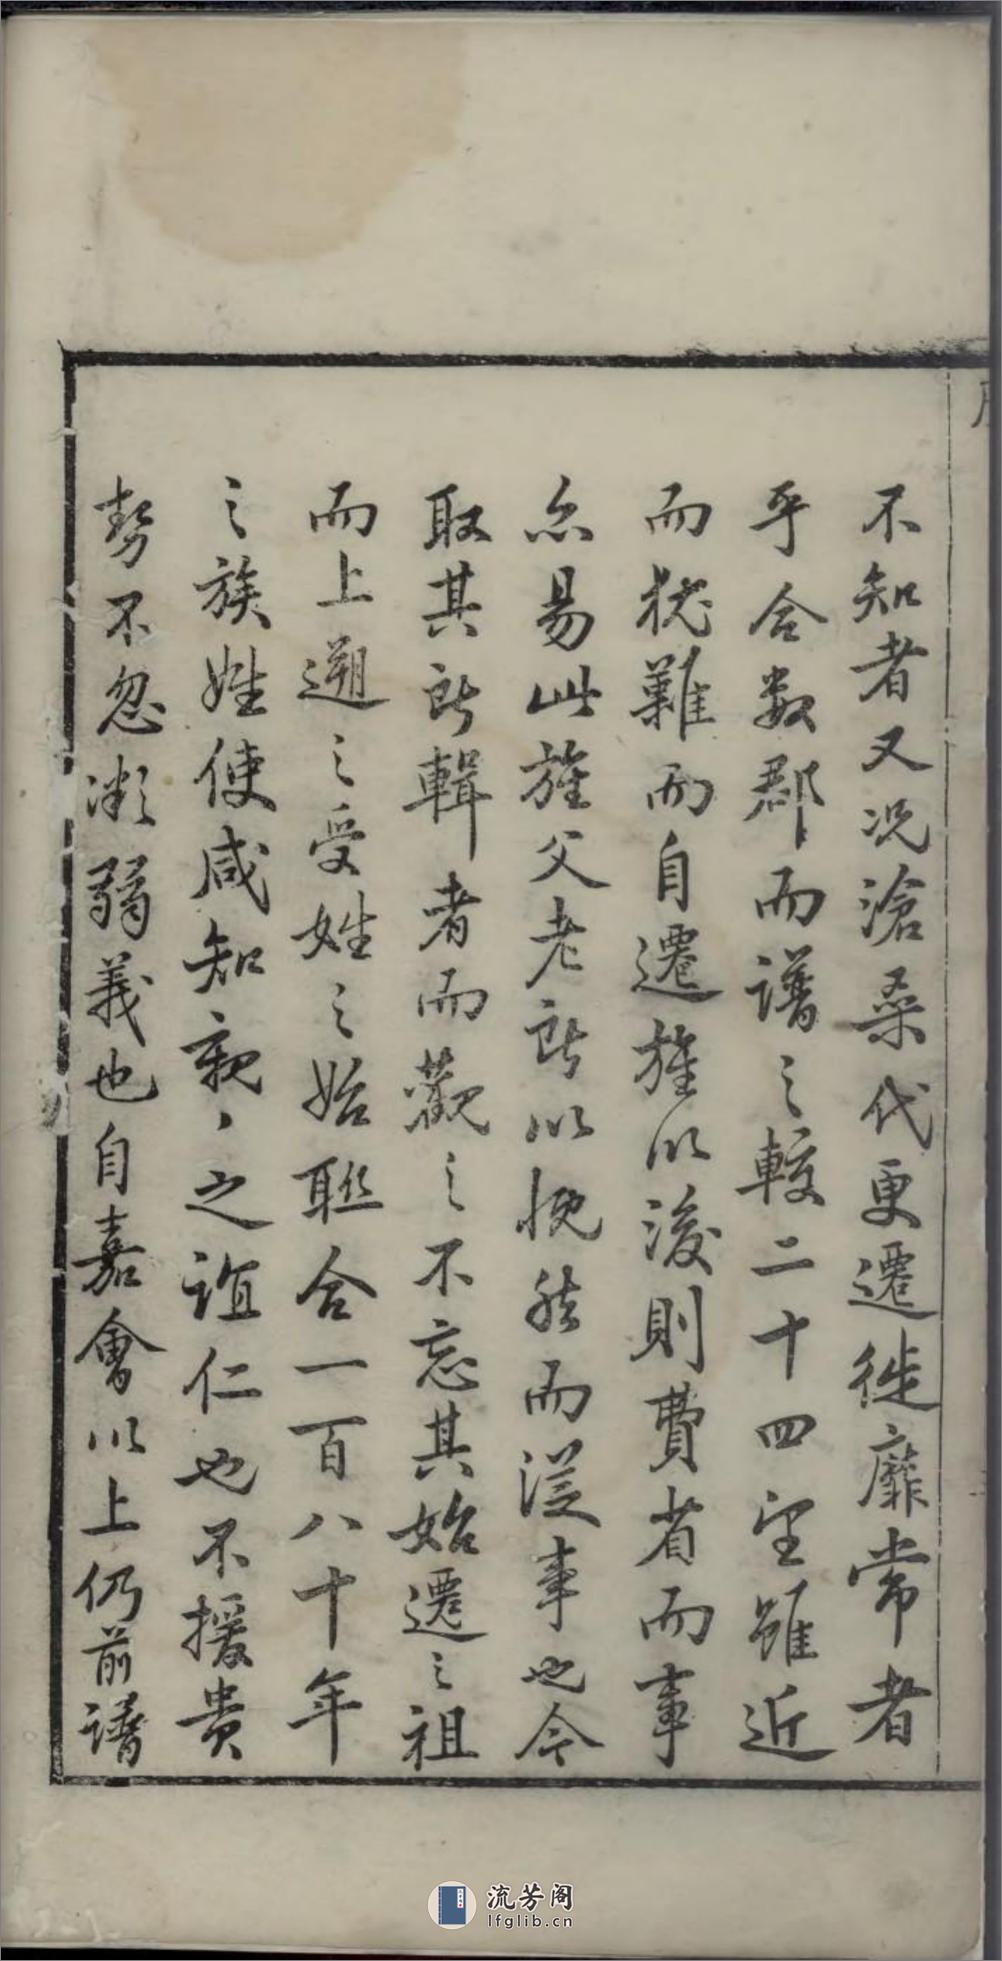 不知者又况滄桑代更遷徙靡常者
乎合数郡而譜之較二十四望雖近
而猶難而自遷旌以後則費省而事
亦易此旌父老所以慨然而從事也今
取其所輯者而觀之不忘其始遷之祖
而上遡之受姓之始聯合一百八十年
之族姓使咸知親〻之誼仁也不援貴
势不忽漸弱義也自嘉會以上仍前譜
流芳阁
lfglib.cn